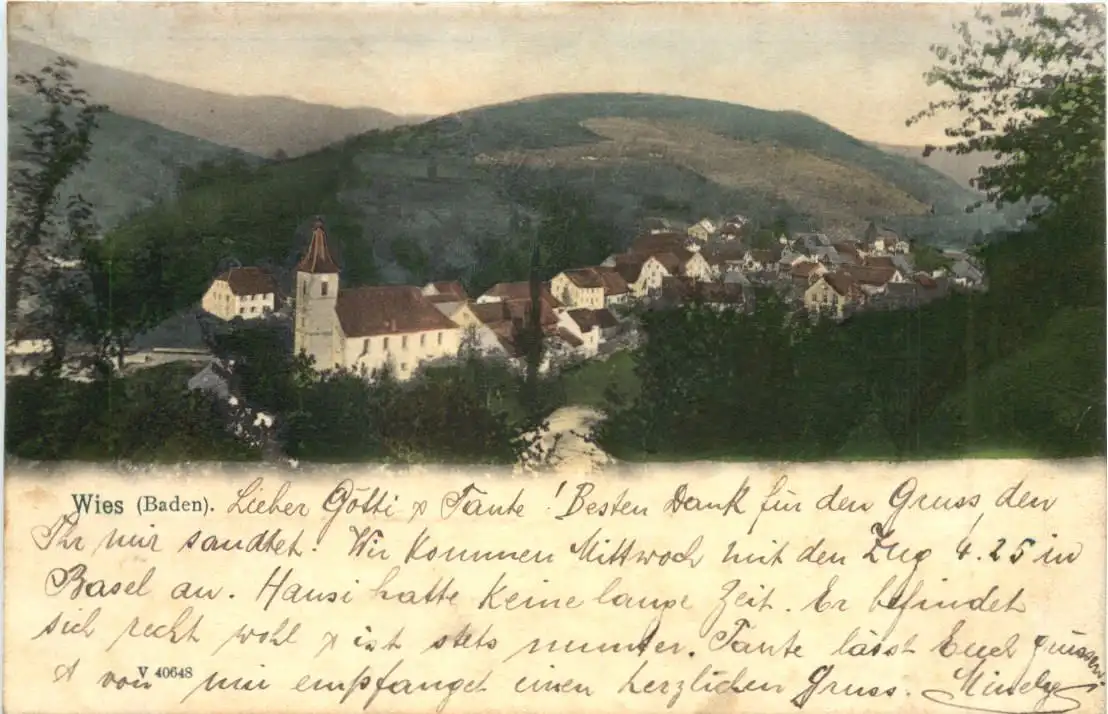 Wies (Baden). Lieber Götti & Tante! Besten Dank für den Gruss, den
Ihr mir sandtet. Wir kommen Mittwoch mit den Zug 4.25 in
Basel an. Hansi hatte keine lange Zeit. Er befindet
sich recht wohl & ist stets munter. Tante lässt Euch grüssen.
& von mir empfanget einen herzlichen Gruss.
V 40648